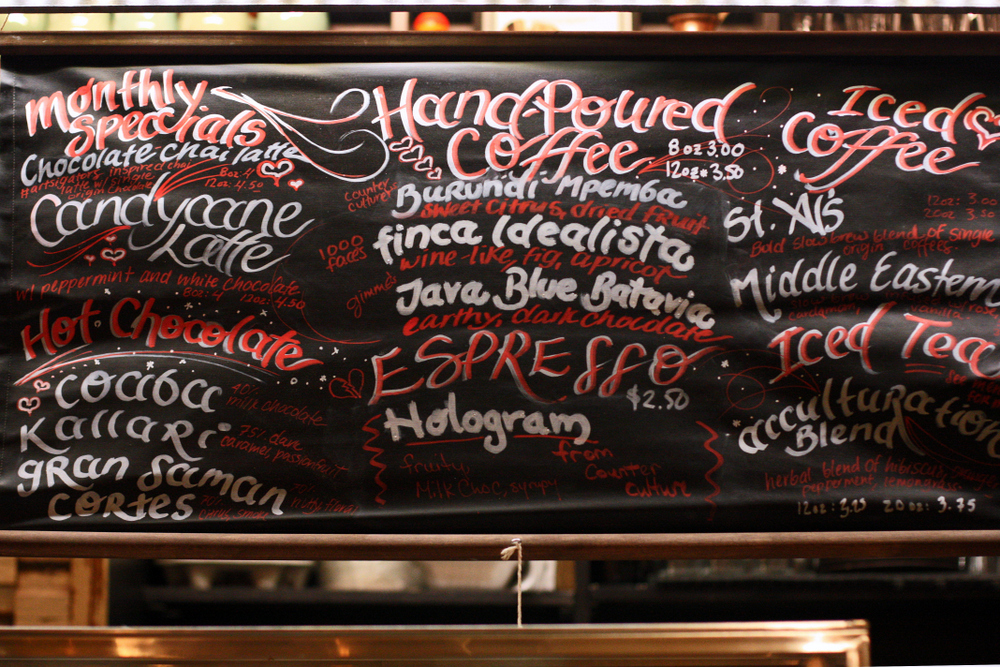 monthly
specials
Chocolate-chai latte
latte w/ single
origin chocolate
8oz: 4
12oz: 4.50
Candycane
Latte
w/ peppermint and white chocolate
8oz: 4 12oz: 4.50
Hot Chocolate
cocoba
40%
milk chocolate
Kallari
75% dark
caramel, passionfruit
gran saman
cortes
Hand-Poured
Coffee
8oz 3.00
12oz 3.50
counter
culture
Burundi Mpemba
sweet citrus, dried fruit
1000
faces
finca Idealista
wine-like, fig, apricot
gimme!
Java Blue Batavia
earthy, dark chocolate
ESPRESSO
$2.50
Hologram
from
Counter
culture
fruity,
Milk Choc, syrupy
Iced
Coffee
St. Al's
12oz: 3.00
20oz: 3.50
Bold slow brew blend of single
origin coffees
Middle Eastern
Iced Tea
acculturation
Blend
herbal blend of hibiscus,
peppermint, lemongrass
12oz: 3.25 20oz: 3.75